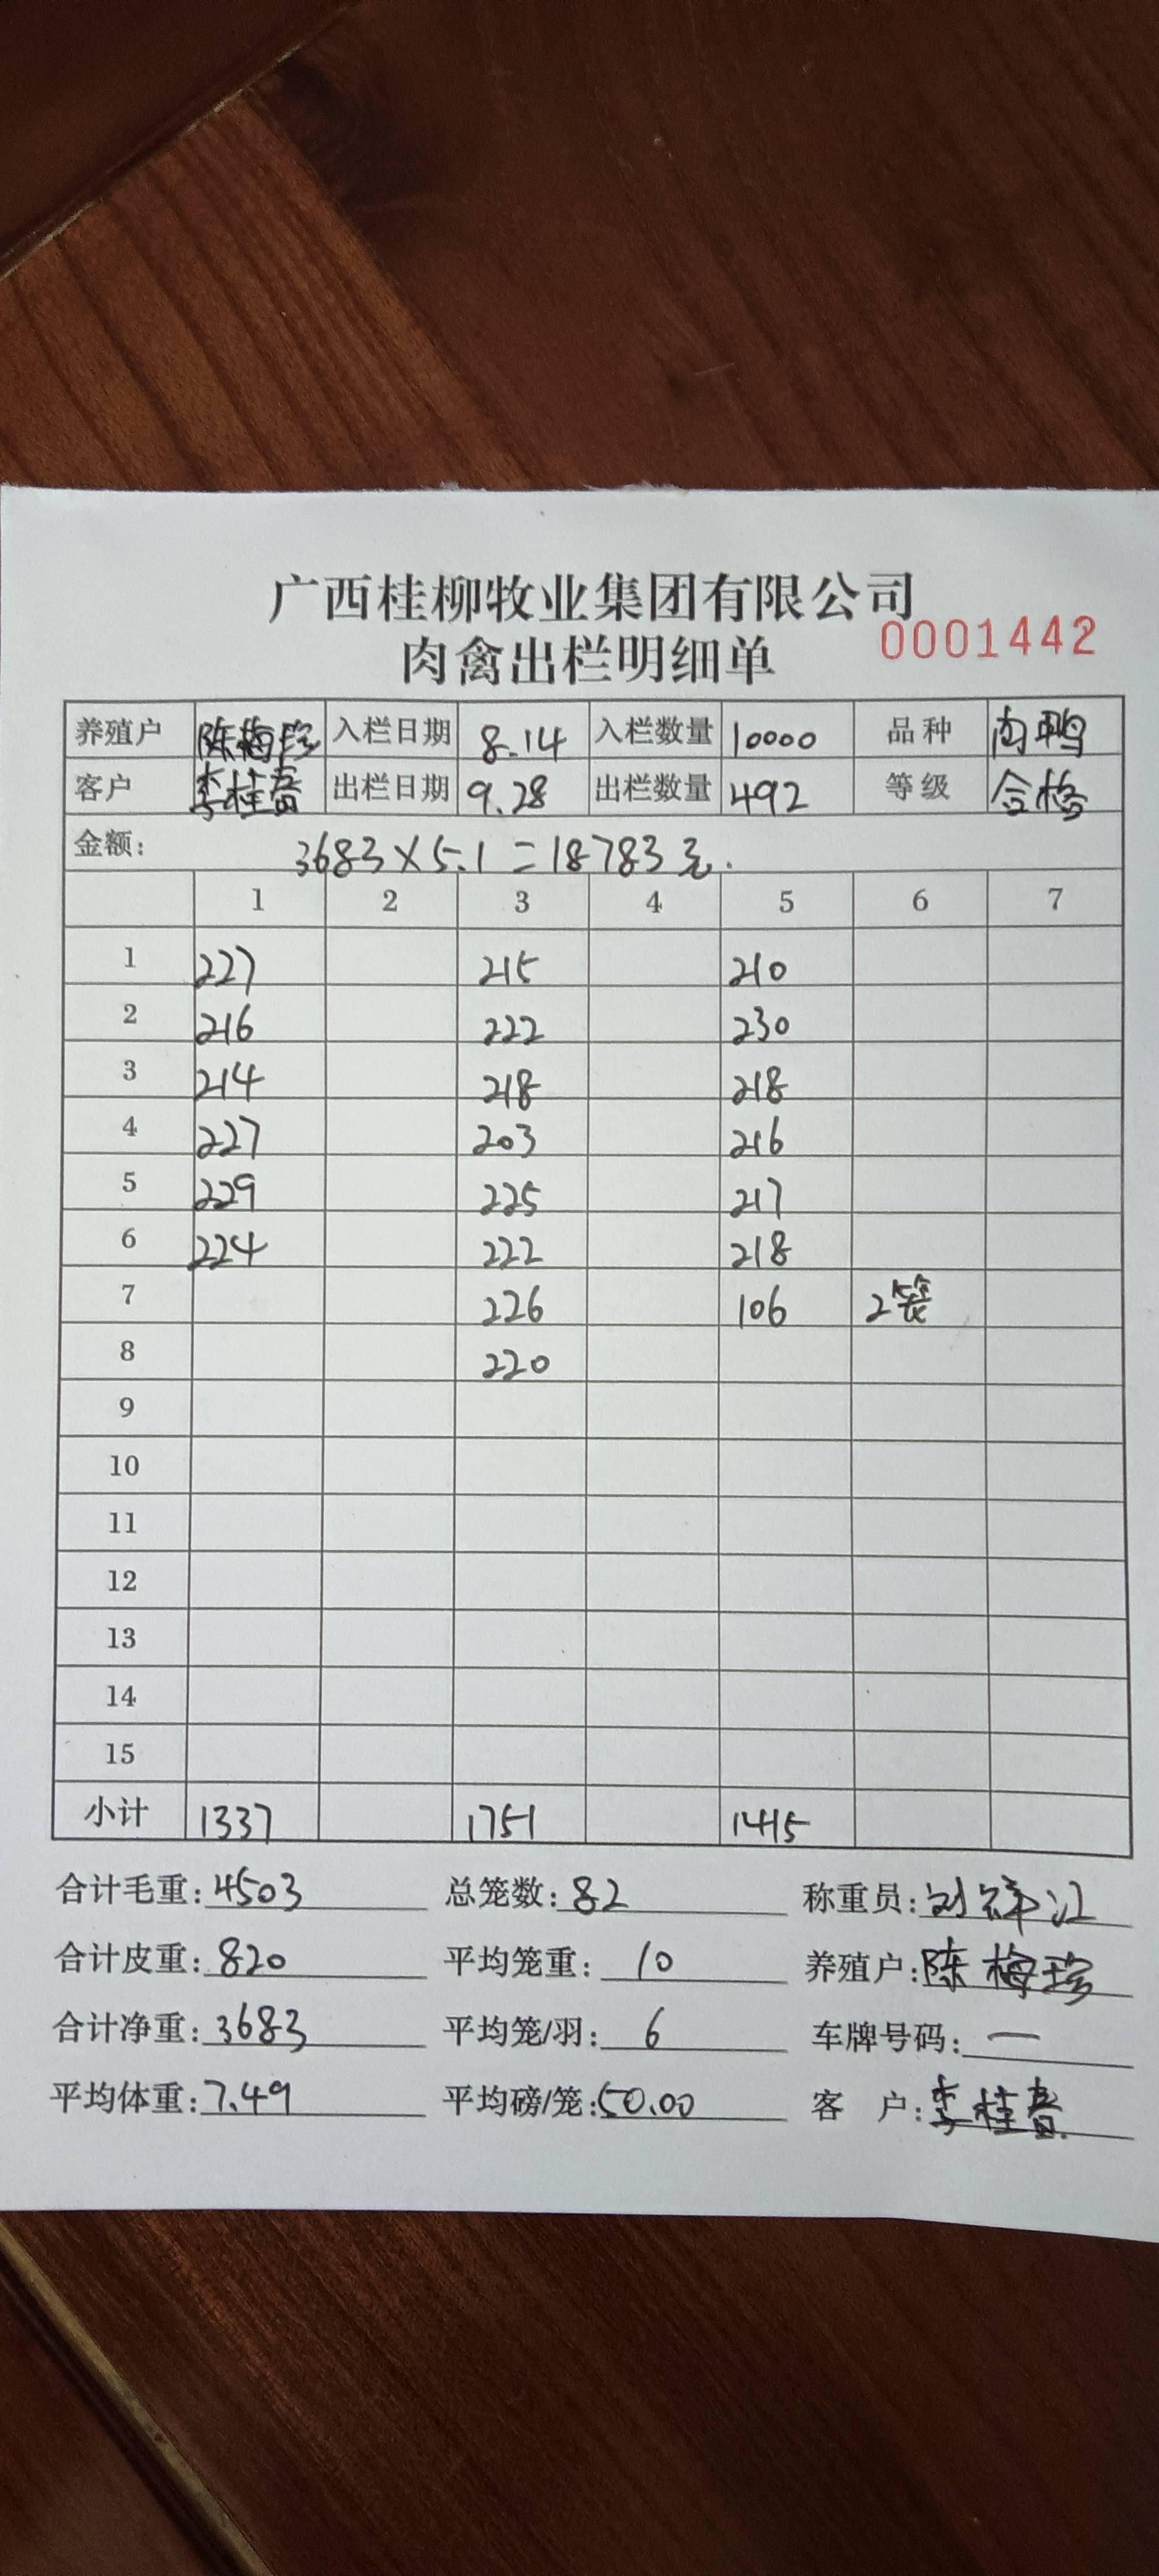 广西桂柳牧业集团有限公司
肉禽出栏明细单 0001442
养殖户 陈梅珍 入栏日期 8.14 入栏数量 10000 品种 肉鸭
客户 李桂香 出栏日期 9.28 出栏数量 492 等级 合格
金额: 3683×5.1=18783元.
1 2 3 4 5 6 7
1 227 215 210
2 216 222 230
3 214 218 218
4 227 203 216
5 229 225 217
6 224 222 218
7 226 106 2笼
8 220
9
10
11
12
13
14
15
小计 1337 1751 1415
合计毛重: 4503 总笼数: 82 称重员: 刘祥江
合计皮重: 820 平均笼重: 10 养殖户: 陈梅珍
合计净重: 3683 平均笼/羽: 6 车牌号码: 一
平均体重: 7.49 平均磅/笼: 50.00 客 户: 李桂香.